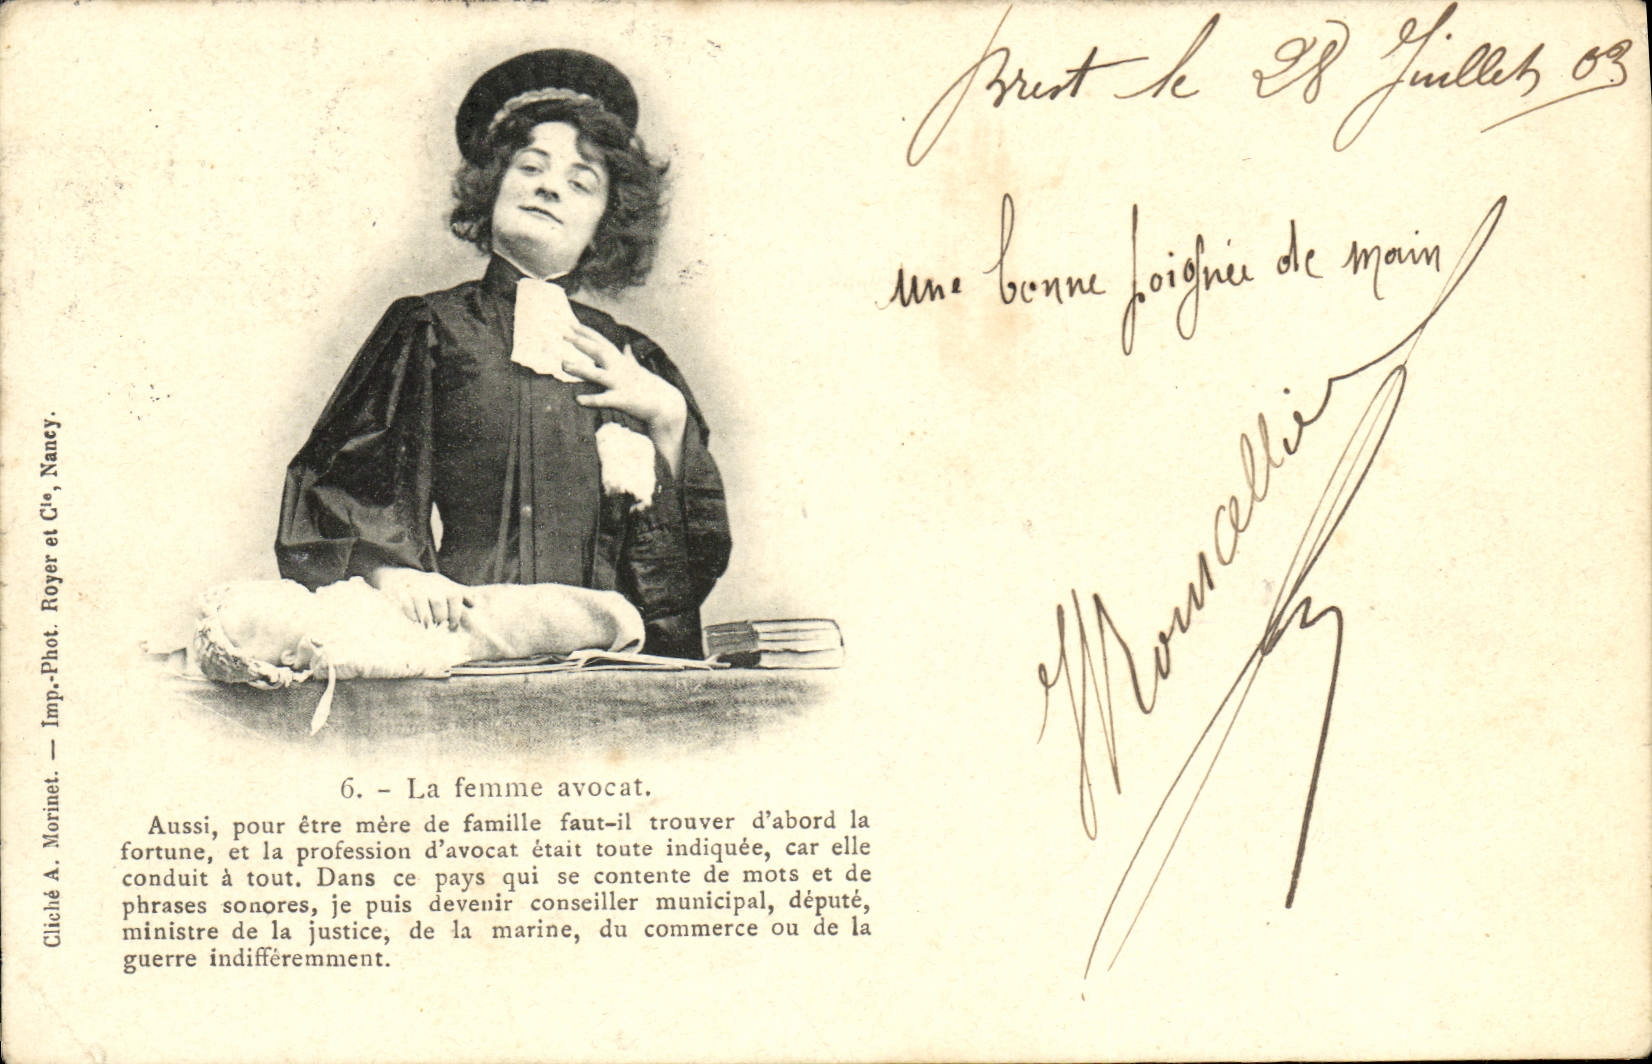 Brest le 28 Juillet 03
une bonne poignée de main
Cliché A. Morinet. — Imp.-Phot. Royer et Cie, Nancy.
6. – La femme avocat.
Aussi, pour être mère de famille faut-il trouver d'abord la
fortune, et la profession d'avocat était toute indiquée, car elle
conduit à tout. Dans ce pays qui se contente de mots et de
phrases sonores, je puis devenir conseiller municipal, député,
ministre de la justice, de la marine, du commerce ou de la
guerre indifféremment.